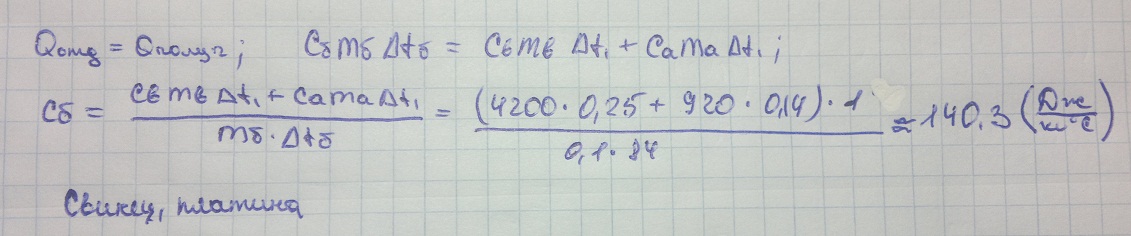 Qотд = Qполуч; Cбmб Δtб = Cвmв Δt₁ + Cama Δt₁;
Cб = (Cвmв Δt₁ + Cama Δt₁) / (mб · Δtб) = ((4200 · 0,25 + 920 · 0,14) · 1) / (0,1 · 84) ≈ 140,3 (Дж / кг°C)
Свинец, платина